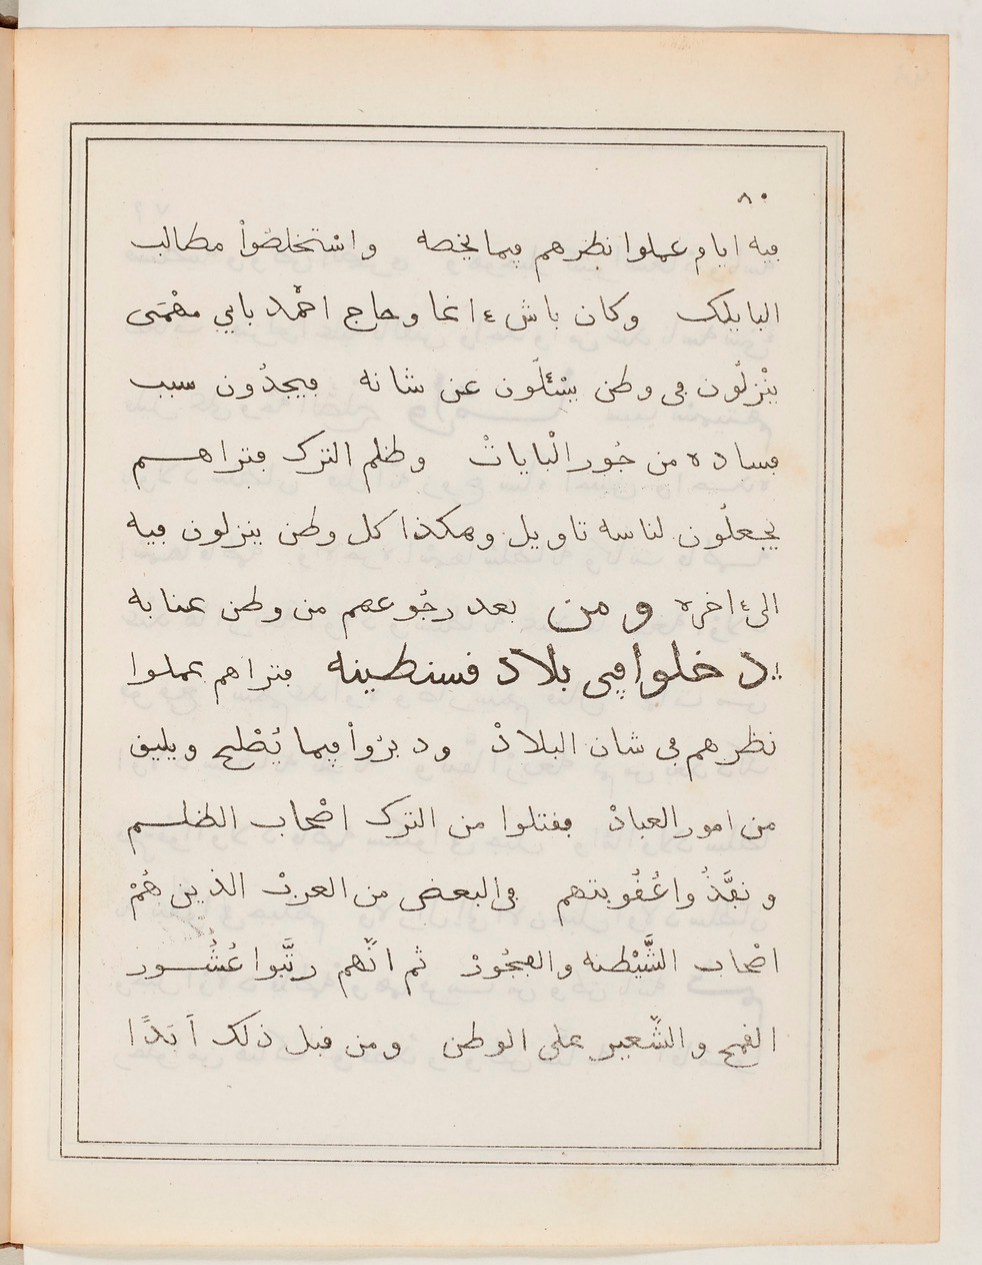 ٨٠
فيه ايام عملوا نظرهم فيما يخصه واسْتخلصُواْ مطالب
البايلك وكان باش ءاغا وحاج احْمد بابي مهْمَى
ينْزلُون في وطن يسْئلُون عن شانه فيجدُون سبب
فساده من جُور الْباياتْ وظلم الترك فتراهم
يجعلُون لناسه تاويل وهكذا كل وطن ينزلون فيه
الىٰ ءاخره ومن بعد رجُوعهم من وطن عنابه
دخلوا في بلاد قسنطينه فتراهم عملوا
نظرهم في شان البلادْ ودبرُواْ فيما يُصْلح ويليق
من امور العبادْ فقتلوا من الترك اصْحاب الظلم
ونفَّذُوا عُقُوبتهم في البعض من العربْ الذين هُمْ
اصْحاب الشَّيْطنه والعجُورْ ثم انّهم رتَّبوا عُشُور
القمح والشّعير على الوطن ومن قبل ذلك اَبَدًا